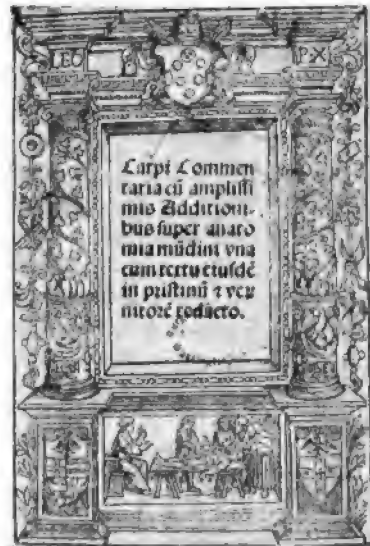 LEO
P·X
Carpi Commen
taria cū amplissi
mis Additioni-
bus super anato
mia mūdini vna
cum textu eiusdē
in pristinū ⁊ ve
nitorē redacto.